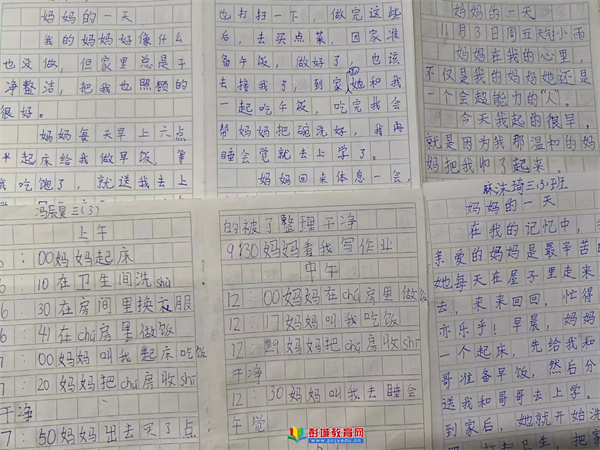 妈妈的一天
我的妈妈好像什么
也没做，但家里总是干
净整洁，把我也照顾的
很好。
妈妈每天早上六点
半起床给我做早饭，等
我吃饱了，就送我去上
也打扫一下，做完这些
后，去买点菜，回家准
备午饭，做好了，也该
去接我了，到家她和我
一起吃午饭，吃完我会
帮妈妈把碗洗好，我再
睡会觉就去上学了。
妈妈回来休息一会，
妈妈的一天
11月3日周五 小雨
妈妈在我的心里，
不仅是我的妈妈她还是
一个会超能力的“人”。
今天我起的很早，
就是因为我那温和的妈
妈把我叫了起来。
冯辰夏三(3)
上午
：00妈妈起床
：10在卫生间洗shu
6：30在房间里换衣服
6：41在chú房里做饭
7：00妈妈叫我起床吃饭
7：20妈妈把chú房收shí
干净
7：50妈妈出去买了点
的被子整理干净
9:30妈妈看我写作业
中午
12：00妈妈在chú房里做饭
12：17妈妈叫我吃饭
12：29妈妈把chú房收shí
干净
12：30妈妈叫我去睡会
午觉
三(3)班
妈妈的一天
在我的记忆中，
亲爱的妈妈是最辛苦
她每天在屋子里走来
去，来来回回，忙得
亦乐乎！早晨，妈妈
一个起床，先给我和
哥准备早饭，然后分
送我和哥哥去上学。
到家后，她就开始洗
打扫卫生，把家
彭城教育网
www.pcjyedu.cn